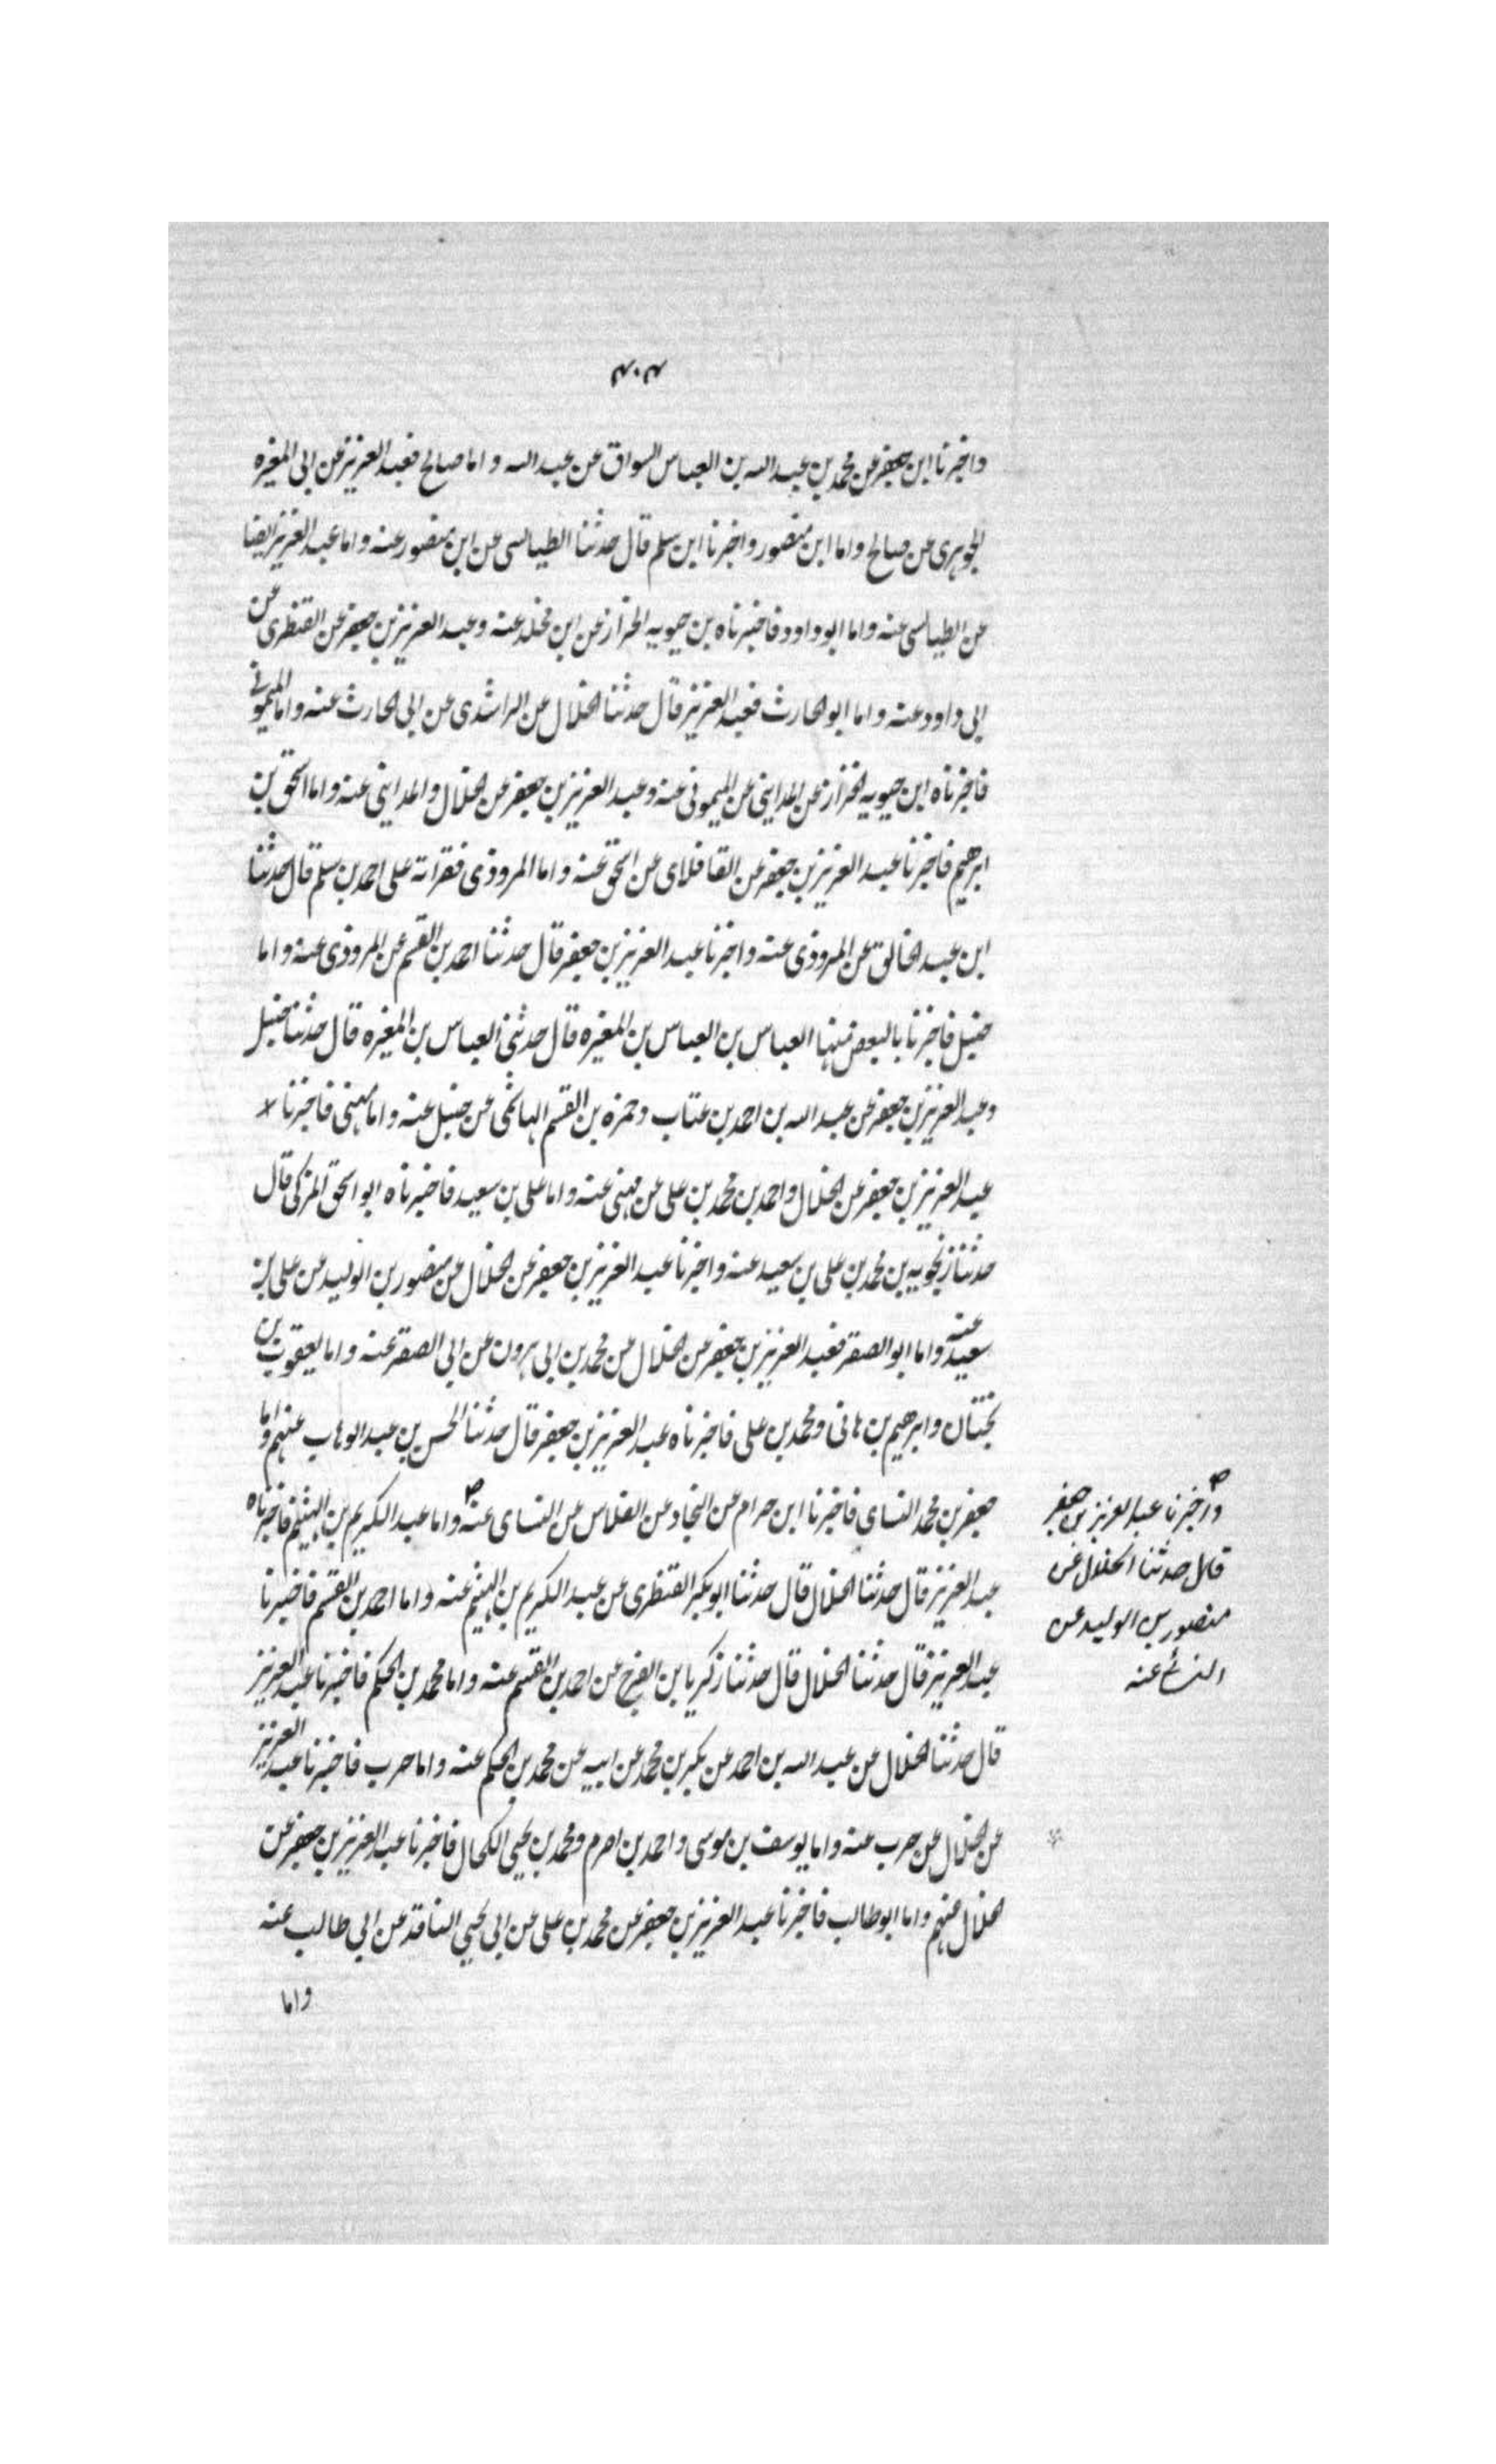 ٤٠٤
واخبرنا ابن جعفر عن محمد بن عبد الله بن العباس السواق عن عبد الله واما صالح فعبد العزيز عن ابى المغيره
الجوهرى عن صالح واما ابن منصور واخبرنا ابن سلم قال حدثنا الطيالسى عن ابن منصور عنه واما عبد العزيز ايضا
عن الطيالسى عنه واما ابو داود فاخبرناه بن حيويه الخزاز عن ابن مخلد عنه وعبد العزيز بن جعفر عن القنطرى عن
ابى داود عنه واما ابو الحارث فعبد العزيز قال حدثنا الخلال عن الراشدى عن ابى الحارث عنه واما الميمونى
فاخبرناه ابن حيويه الخزاز عن المداينى عن الميمونى عنه وعبد العزيز بن جعفر عن الخلال والمداينى عنه واما اسحق بن
ابرهيم فاخبرنا عبد العزيز بن جعفر عن القافلاى عن اسحق عنه واما المروذى فقراته على احمد بن سلم قال حدثنا
ابن عبد الخالق عن المروذى عنه واخبرنا عبد العزيز بن جعفر قال حدثنا احمد بن القسم عن المروذى عنه واما
حنبل فاخبرنا بالبعض منها العباس بن العباس بن المغيره قال حدثنى العباس بن المغيره قال حدثنا حنبل
وعبد العزيز بن جعفر عن عبد الله بن احمد بن عتاب وحمزه بن القسم الهاشمى عن حنبل عنه واما مهنى فاخبرنا
عبد العزيز بن جعفر عن الخلال واحمد بن محمد بن على عن مهنى عنه واما على بن سعيد فاخبرناه ابو اسحق المزكى قال
حدثنا زنجويه بن محمد بن على بن سعيد عنه واخبرنا عبد العزيز بن جعفر عن الخلال عن منصور بن الوليد عن على بن
سعيد عنه واما ابو الصقر فعبد العزيز بن جعفر عن الخلال عن محمد بن ابى هرون عن ابى الصقر عنه واما يعقوب بن
بختان وابرهيم بن هانى ومحمد بن على فاخبرناه عبد العزيز بن جعفر قال حدثنا الحسن بن عبد الوهاب عنهم واما
جعفر بن محمد النساى فاخبرنا ابن حرام عن النجاد عن الفلاس عن النساى عنه واما عبد الكريم بن الهيثم فاخبرناه
عبد العزيز قال حدثنا الخلال قال حدثنا ابو بكر القنطرى عن عبد الكريم بن الهيثم عنه واما احمد بن القسم فاخبرنا
عبد العزيز قال حدثنا الخلال قال حدثنا زكريا بن الفرج عن احمد بن القسم عنه واما محمد بن الحكم فاخبرنا عبد العزيز
قال حدثنا الخلال عن عبد الله بن احمد عن بكر بن محمد عن ابيه عن محمد بن الحكم عنه واما حرب فاخبرنا عبد العزيز
عن الخلال عن حرب عنه واما يوسف بن موسى واحمد بن اصرم ومحمد بن يحيى الكحال فاخبرنا عبد العزيز بن جعفر عن
الخلال عنهم واما ابو طالب فاخبرنا عبد العزيز بن جعفر عن محمد بن على عن ابى يحيى الناقد عن ابى طالب عنه
واما
واخبرنا عبد العزيز بن جعفر
قال حدثنا الخلال عن
منصور بن الوليد عن
النسائ عنه